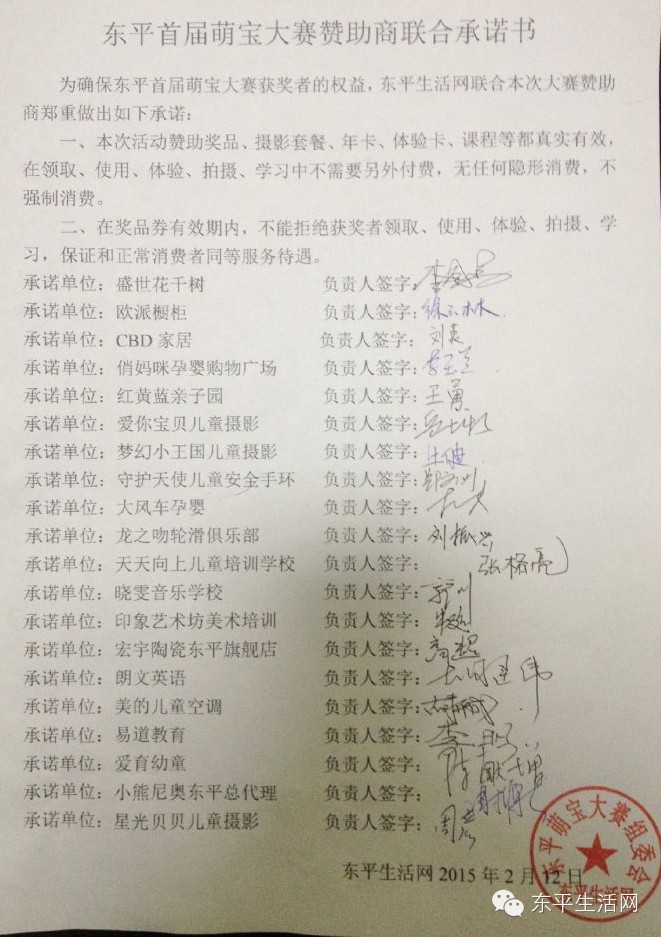 东平首届萌宝大赛赞助商联合承诺书
为确保东平首届萌宝大赛获奖者的权益，东平生活网联合本次大赛赞助
商郑重做出如下承诺：
一、本次活动赞助奖品、摄影套餐、年卡、体验卡、课程等都真实有效，
在领取、使用、体验、拍摄、学习中不需要另外付费，无任何隐形消费，不
强制消费。
二、在奖品券有效期内，不能拒绝获奖者领取、使用、体验、拍摄、学
习，保证和正常消费者同等服务待遇。
承诺单位：盛世花千树 负责人签字：
承诺单位：欧派橱柜 负责人签字：
承诺单位：CBD 家居 负责人签字：
承诺单位：俏妈咪孕婴购物广场 负责人签字：
承诺单位：红黄蓝亲子园 负责人签字：王勇
承诺单位：爱你宝贝儿童摄影 负责人签字：
承诺单位：梦幻小王国儿童摄影 负责人签字：
承诺单位：守护天使儿童安全手环 负责人签字：
承诺单位：大风车孕婴 负责人签字：
承诺单位：龙之吻轮滑俱乐部 负责人签字：刘振兴
承诺单位：天天向上儿童培训学校 负责人签字：张格亮
承诺单位：晓雯音乐学校 负责人签字：
承诺单位：印象艺术坊美术培训 负责人签字：
承诺单位：宏宇陶瓷东平旗舰店 负责人签字：
承诺单位：朗文英语 负责人签字：
承诺单位：美的儿童空调 负责人签字：
承诺单位：易道教育 负责人签字：
承诺单位：爱育幼童 负责人签字：
承诺单位：小熊尼奥东平总代理 负责人签字：
承诺单位：星光贝贝儿童摄影 负责人签字：
东平生活网 2015 年 2 月 12 日
东平萌宝大赛组委会
东平生活网
东平生活网